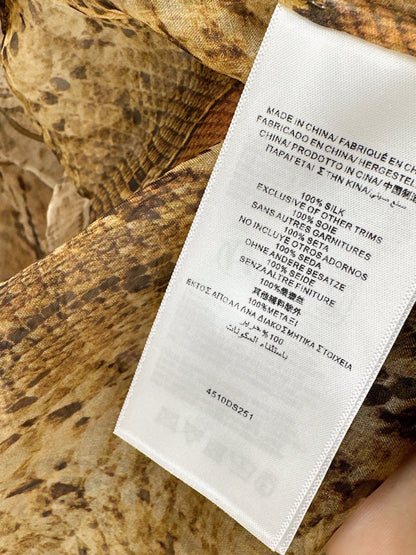 MADE IN CHINA/ FABRIQUÉ EN CH
FABRICADO EN CHINA/ HERGESTEL
CHINA/ PRODOTTO IN CINA/ 中国制
ΠΑΡΑΓΕΤΑΙ ΣΤΗΝ ΚΙΝΑ/ صنع في
100% SILK
EXCLUSIVE OF OTHER TRIMS
100% SOIE
SANS AUTRES GARNITURES
100% SETA
NO INCLUYE OTROS ADORNOS
100% SEDA
OHNE ANDERE BESATZE
100% SEIDE
SENZA ALTRE FINITURE
100%桑蚕丝
其他辅料除外
100%ΜΕΤΑΞΙ
ΕΚΤΟΣ ΑΠΟ ΑΛΛΑ ΔΙΑΚΟΣΜΗΤΙΚΑ ΣΤΟΙΧΕΙΑ
100% حرير
باستثناء المكونات
4510DS251